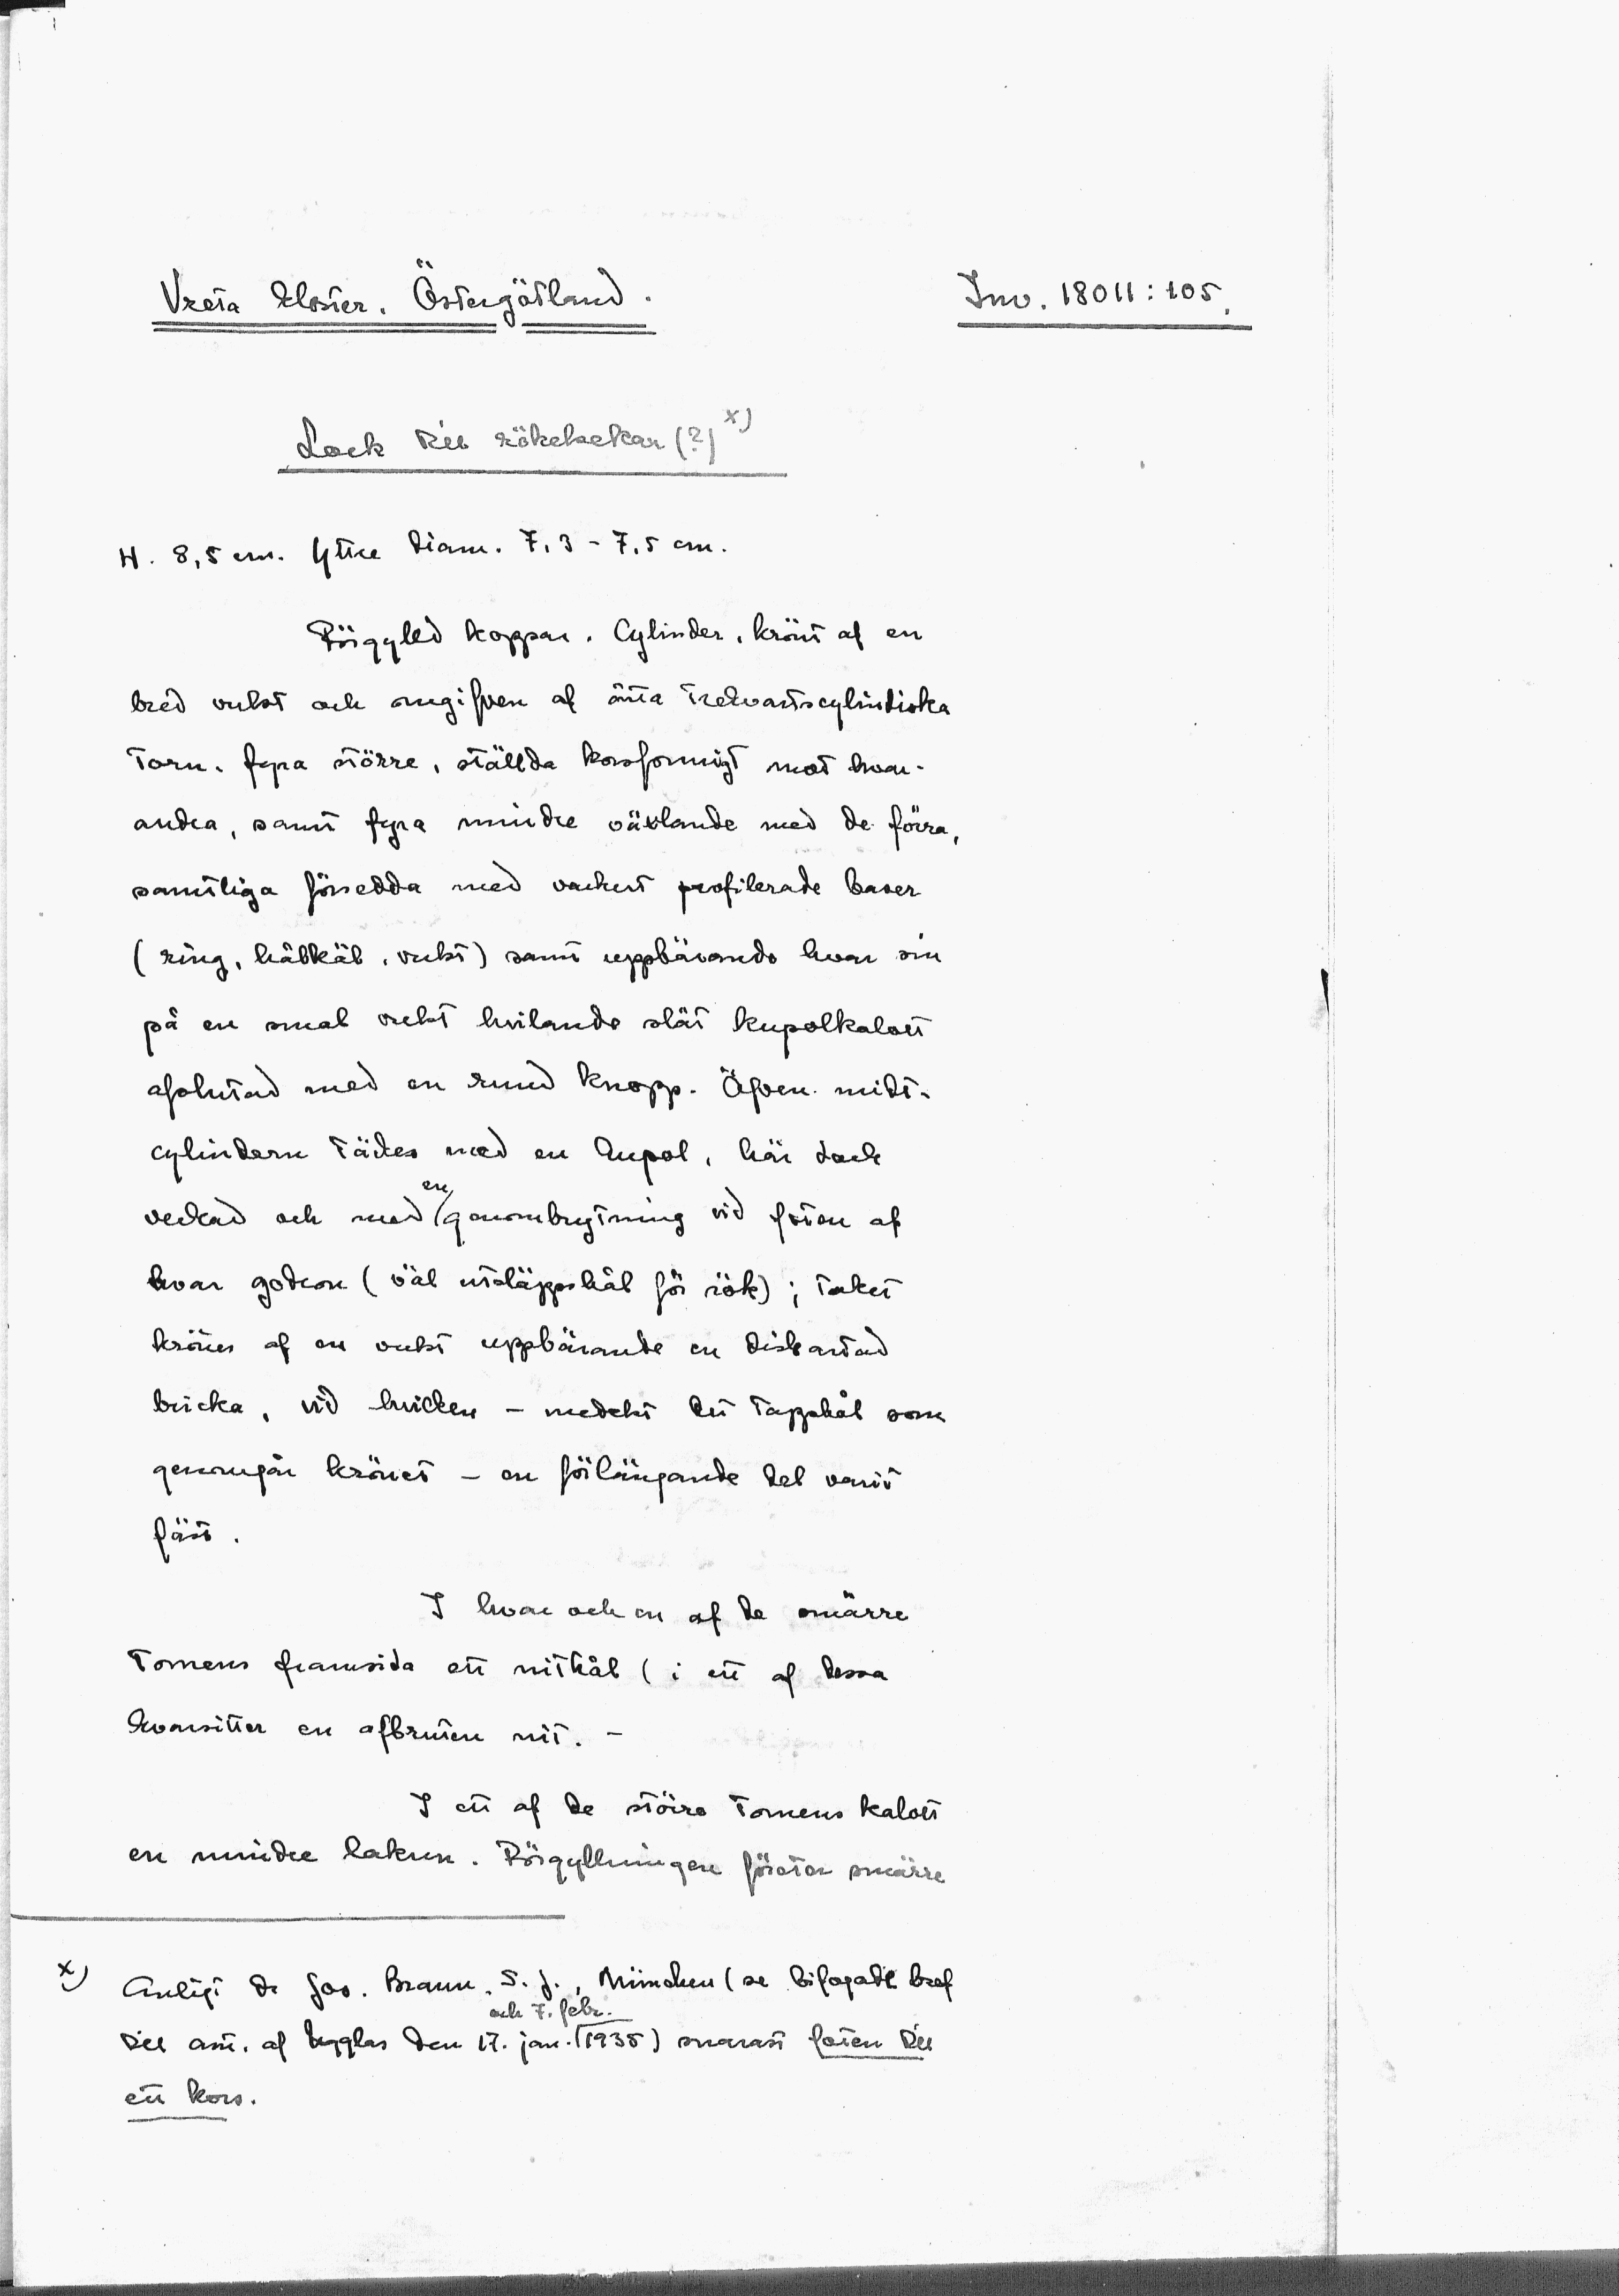 Vreta kloster. Östergötland.
Inv. 18011:105.
Lock till rökelsekar (?) x)
H. 8,5 cm. Yttre diam. 7,3 - 7,5 cm.
Förgylld koppar. Cylinder, krönt af en
bred vulst och omgifven af åtta trekvartscylindiska
torn, fyra större, ställda korsformigt mot hvar-
andra, samt fyra mindre växlande med de förra,
samtliga försedda med vackert profilerade baser
(ring, hålkäl, vulst) samt uppbärande hvar sin
på en smal vulst hvilande slät kupolkalott
afslutad med en rund knopp. Äfven midt-
cylindern täckes med en kupol, här dock
veckad och med en genombrytning vid foten af
hvar godron (väl utsläppshål för rök); taket
krönes af en vulst uppbärande en diskartad
bricka, vid hvilken - medelst det tapphål som
genomgår krönet - en förlängande del varit
fäst.
I hvar och en af de smärre
tornens framsida ett nithål (i ett af dessa
kvarsitter en afbruten nit. -
I ett af de större tornens kalott
en mindre lakun. Förgyllningen företer smärre
x) Enligt Dr Jos. Braun, S. J., München (se bifogade bref
och 7. febr.
till ant. af Ugglas den 17. jan. 1935) snarast foten till
ett kors.